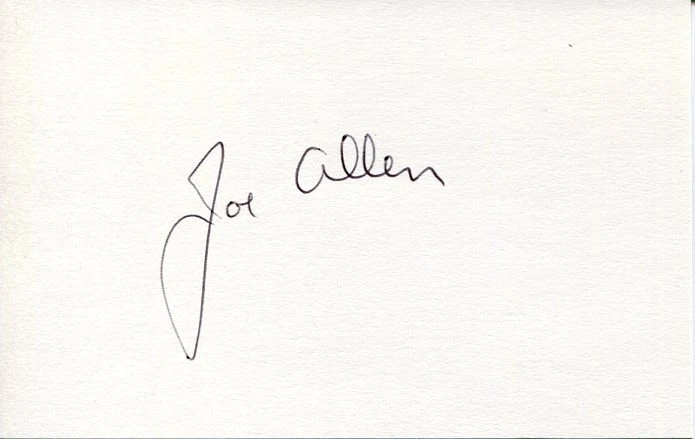 Joe Allen